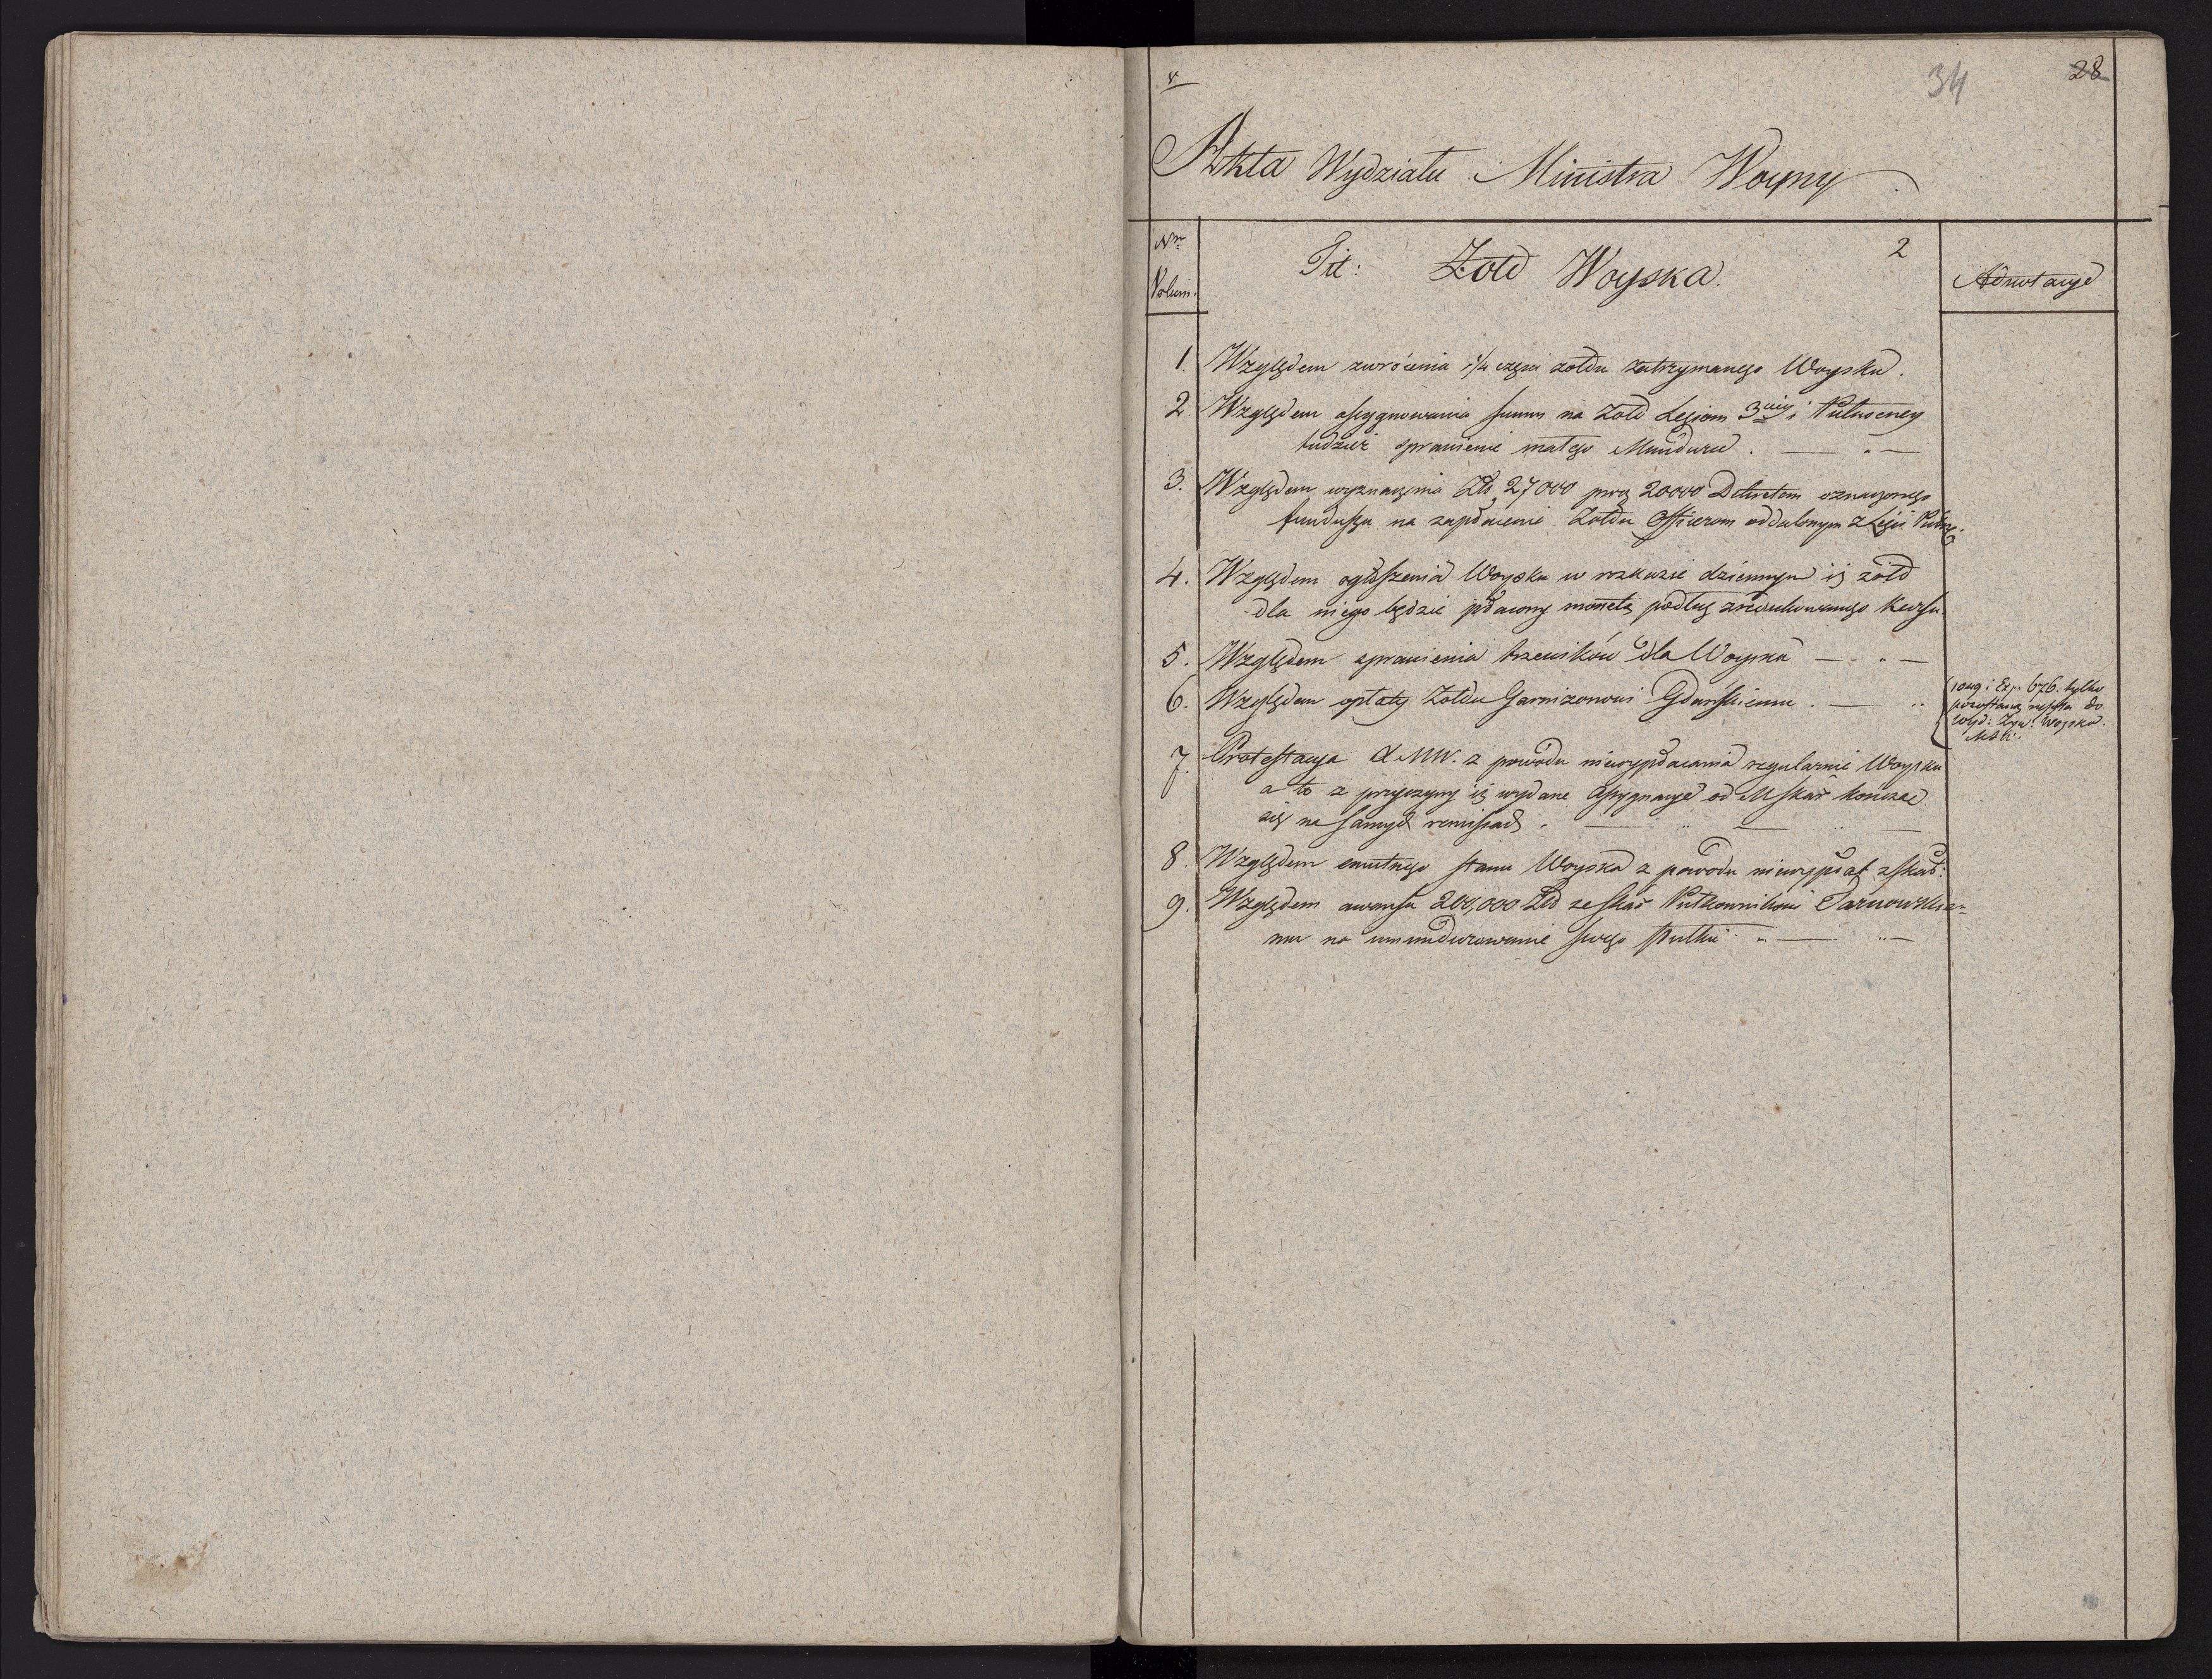 34 28
Akta Wydziału Ministra Woyny
Nro
Volum.
Tit: Żołd Woyska. 2
Adnotacye
1. Względem zwrócenia 1/4 części żołdu zatrzymanego Woysku.
2. Względem assygnowania summ na Żołd Legiom 3ciey i Pułnocney
tudzież sprawienie małego Munduru. — " —
3. Względem wyznaczenia Zł. 27000 prócz 20000 Dekretem oznaczonego
funduszu na zapłacenie Żołdu Officerom oddalonym z Legii Pułnc.
4. Względem ogłoszenia Woysku w rozkazie dziennym iż żołd
dla niego będzie płacony monetą podług zredukowanego kursu.
5. Względem sprawienia trzewików dla Woyska — " —
6. Względem opłaty Żołdu Garnizonowi Gdańskiemu. — "
Exp. 676. tylko
do
Woyska.
7. Protestacya MW. z powodu niewypłacania regularnie Woysku
a to z przyczyny iż wydane Assygnacye od MSkar kończą
się na samych remissach. — " — " —
8. Względem smutnego stanu Woyska z powodu niewypłat z Skar:
9. Względem awansu 200,000 Zł ze Skar Pułkownikowi Tarnowskie-
mu na umundurowanie swego Pułku " — " —